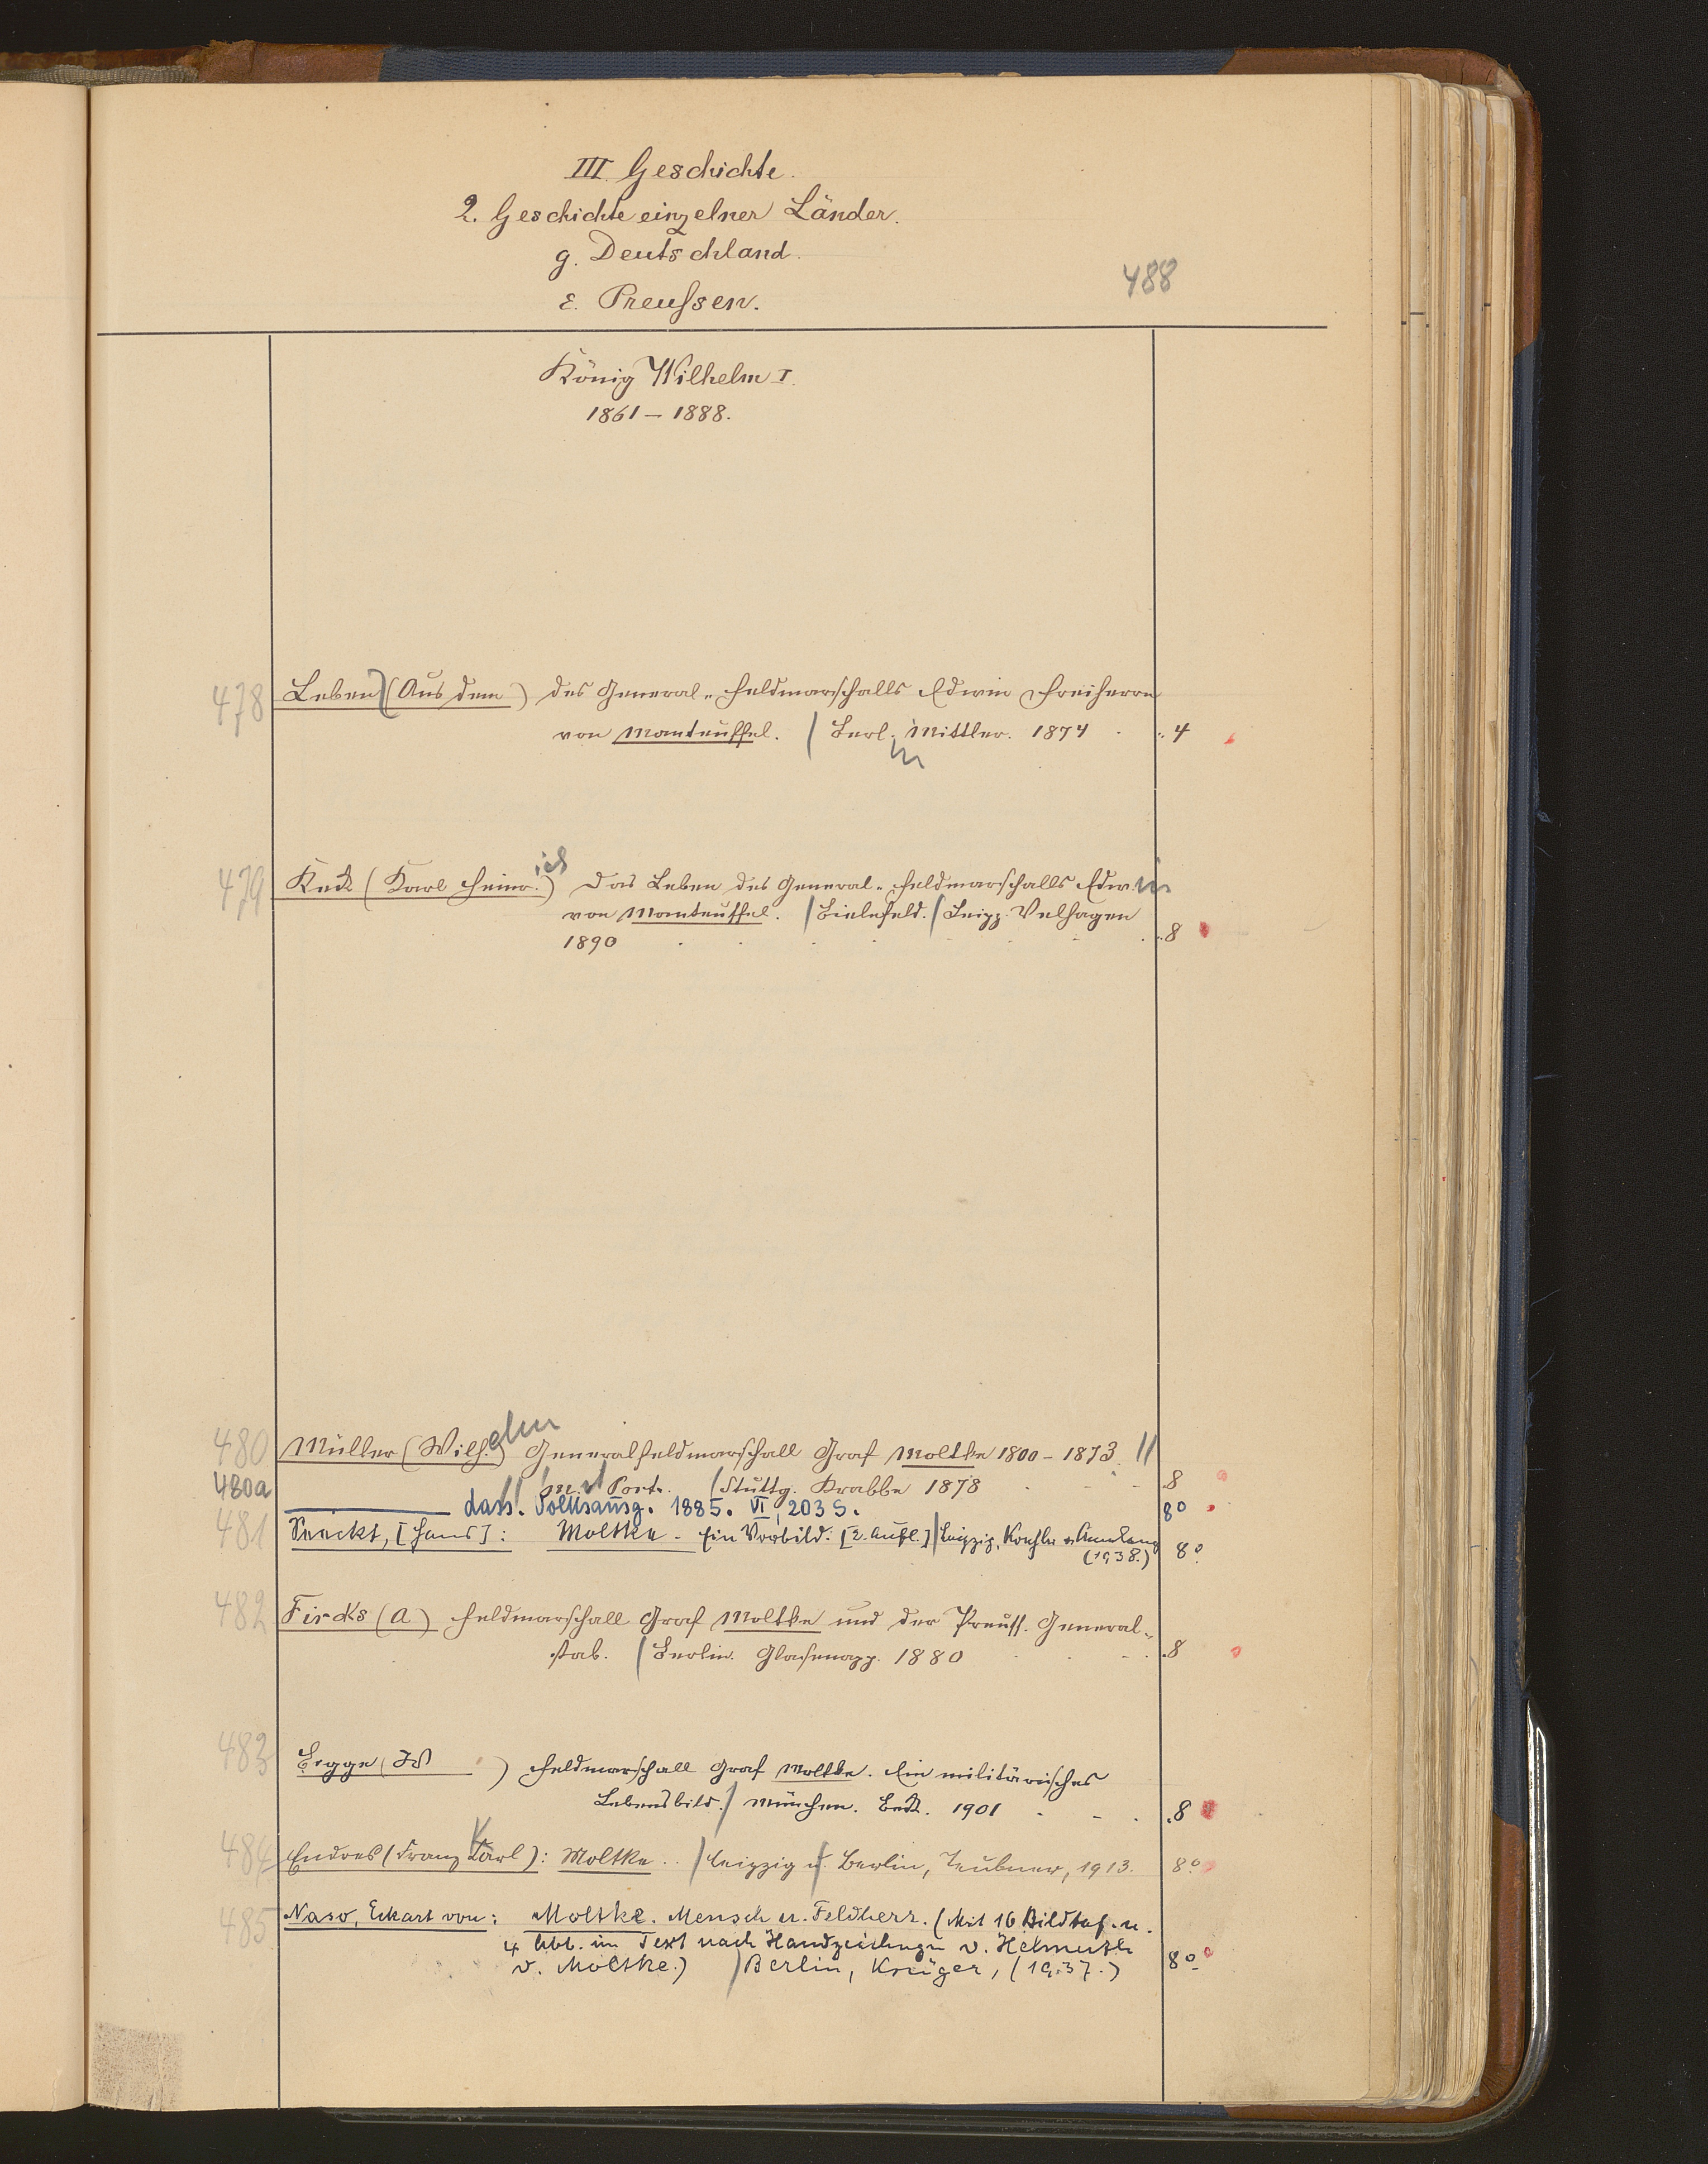 III. Geschichte.
2. Geschichte einzelner Länder.
g. Deutschland.
488
ε. Preußen.
König Wilhelm I.
1861 – 1888.
478 Leben (Aus dem) des General-Feldmarschalls Edwin Freiherrn
von Manteuffel. / Berlin Mittler. 1874 4
479 Keck (Karl Heinrich) Das Leben des General-Feldmarschalls Edwin
von Manteuffel. / Bielefeld. / Leipz. Velhagen
1890 8
480 Müller (Wilhelm) Generalfeldmarschall Graf Moltke 1800 – 1873. //
M. Portr. / Stuttg. Krabbe 1878 8
480a dass. Volksausg. 1885. VI, 203 S. 8°
481 Seeckt, [Hans]: Moltke. Ein Vorbild. [2. Aufl.] / Leipzig, Koehler & Amelang
(1938.) 8°
482 Fircks (A) Feldmarschall Graf Moltke und der Preuss. General-
stab. / Berlin. Glasenapp. 1880 8
483 Bigge (W ) Feldmarschall Graf Moltke. Ein militärisches
Lebensbild. / München. Beck. 1901 8
484 Endres (Franz Karl): Moltke. / Leipzig u. Berlin, Teubner, 1913. 8°
485 Naso, Eckart von: Moltke. Mensch u. Feldherr. (Mit 16 Bildtaf. u.
4 Abb. im Text nach Handzeichngn v. Helmuth
v. Moltke.) / Berlin, Krüger, (1937.) 8°